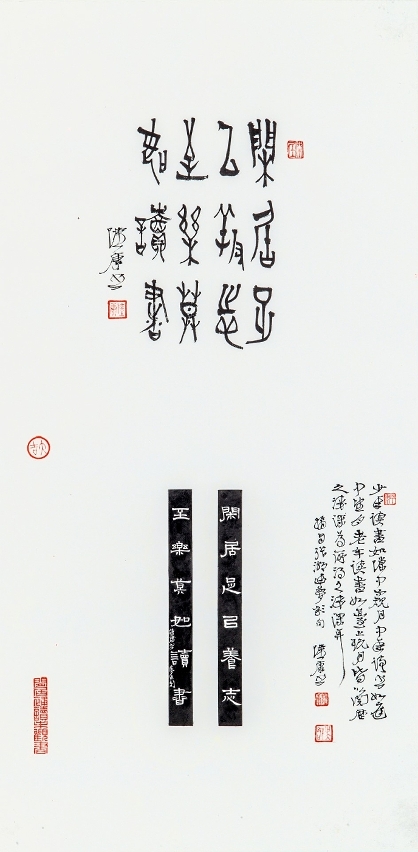 閑居足
㠯養志
至樂莫
如讀書
閑居足㠯養志
至樂莫如讀書
少年讀書如隙中窺月中年讀書如庭
中望月老年讀書如臺上玩月皆以閱歷
之淺深為所得之淺深耳
錄自張潮幽夢影句